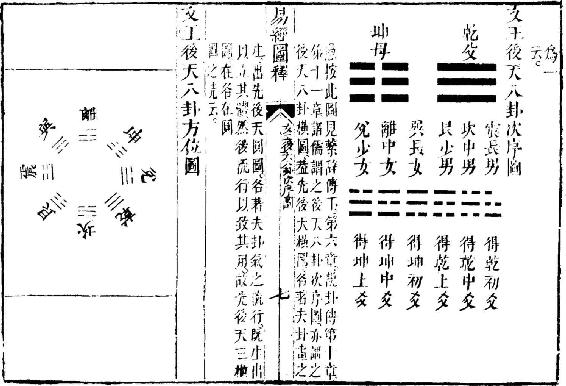 爲一
云。
文王後天八卦次序圖
乾父
坤母
震長男
坎中男
艮少男
巽長女
離中女
兌少女
得乾初爻
得乾中爻
得乾上爻
得坤初爻
得坤中爻
得坤上爻
按此圖見繫辭傳下第六章說卦傳第十章
第十一章諸儒謂之後天八卦次序圖亦謂之
後天八卦橫圖蓋先後天橫圖各著夫卦畫之
易經圖釋
七
生出先後天圓圖各著夫卦氣之流行既生出
以立其體然後流行以致其用故先後天三橫
圖在各在圓
圖之先云
文王後天八卦方位圖
離
坤
兌
乾
坎
艮
震
巽